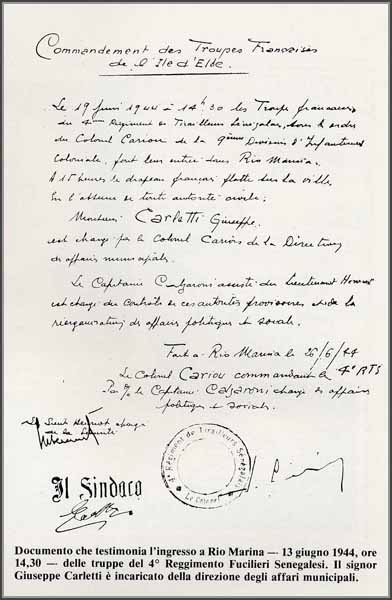 Commandement des Troupes Françaises
de l'Ile d'Elbe.
Le 19 Juin 1944 à 14h30 les Troupes françaises
du 4ème Régiment de Tirailleurs Sénégalais, sous les ordres
du Colonel Cariou de la 9ème Division d'Infanterie
Coloniale, font leur entrée dans Rio Marina.
A 15 heures le drapeau français flotte sur la ville.
En l'absence de toute autorité civile:
Monsieur Carletti Giuseppe
est chargé par le Colonel Cariou de la Direction
des affaires municipales.
Le Capitaine Calzaroni assisté du Lieutenant
est chargé du contrôle de ces autorités provisoires et de la
réorganisation des affaires politiques et sociales.
Fait à Rio Marina le 26/6/44
Le Colonel Cariou commandant le 4° RTS
le Capitaine Calzaroni chargé des affaires
politiques et sociales.
Le Lieut chargé
de la Sécurité
4e Régiment de Tirailleurs Sénégalais
Le Colonel
Il Sindaco
Documento che testimonia l'ingresso a Rio Marina — 13 giugno 1944, ore
14,30 — delle truppe del 4° Reggimento Fucilieri Senegalesi. Il signor
Giuseppe Carletti è incaricato della direzione degli affari municipali.